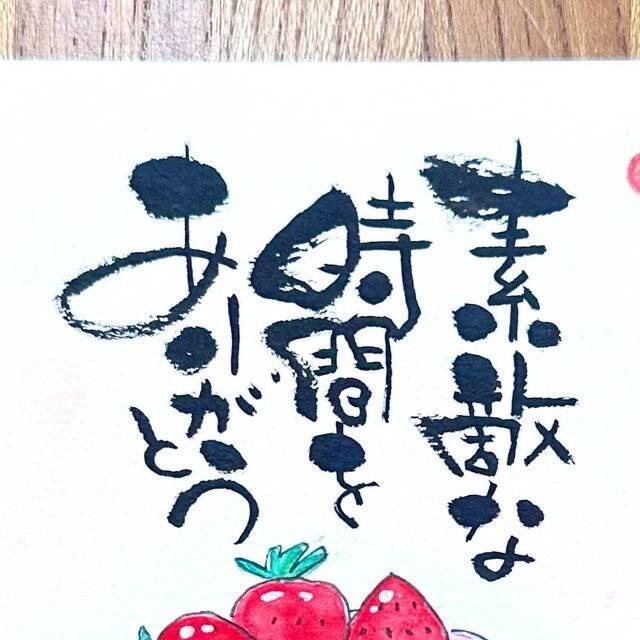 素敵な
時間を
ありがとう